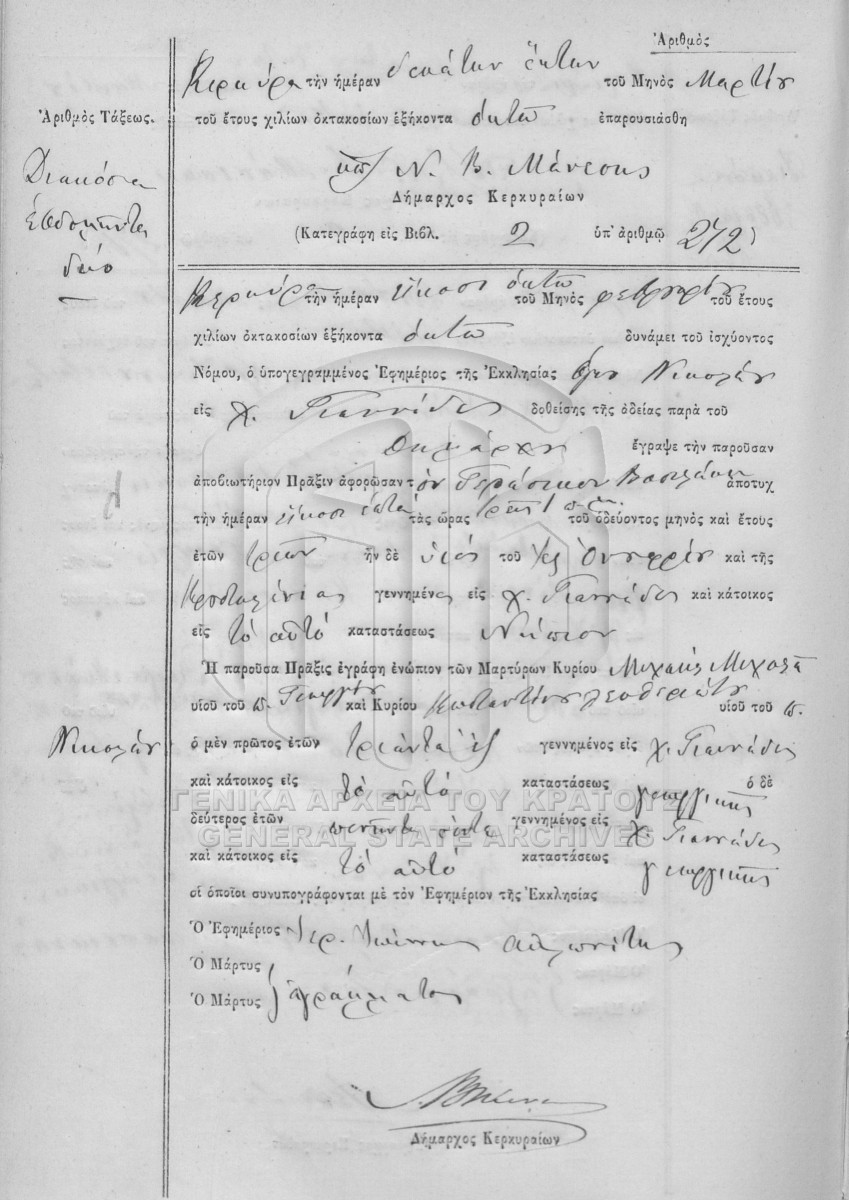 Ἀριθμὸς
Κερκύρα τὴν ἡμέραν δεκάτην ἕκτην τοῦ Μηνὸς Μαρτίου
Ἀριθμὸς Τάξεως.
τοῦ ἔτους χιλίων ὀκτακοσίων ἑξήκοντα ὀκτὼ ἐπαρουσιάσθη
Διακόσια
ἑβδομῆντα
δύο
Ν. Β. Μάνεσης
Δήμαρχος Κερκυραίων
(Κατεγράφη εἰς Βιβλ. 2 ὑπ' ἀριθμῷ 272)
Κερκύρα τὴν ἡμέραν εἴκοσι ὀκτὼ τοῦ Μηνὸς φεβρουαρίου τοῦ ἔτους
χιλίων ὀκτακοσίων ἑξήκοντα ὀκτὼ δυνάμει τοῦ ἰσχύοντος
Νόμου, ὁ ὑπογεγραμμένος Ἐφημέριος τῆς Ἐκκλησίας Ἁγίου Νικολάου
εἰς χ. Γιαννάδες δοθείσης τῆς ἀδείας παρὰ τοῦ
Δημάρχου ἔγραψε τὴν παροῦσαν
ἀποβιωτήριον Πρᾶξιν ἀφορῶσαν τὸν Γεράσιμον Βασιλάκη ἀποτυχ
τὴν ἡμέραν εἴκοσι ἑπτὰ τὰς ὥρας τοῦ ὁδεύοντος μηνὸς καὶ ἔτους
ἐτῶν τριῶν ἦν δὲ υἱὸς τοῦ Ὀνουφρίου καὶ τῆς
Κρυσταλένιας γεννημένος εἰς χ. Γιαννάδες καὶ κάτοικος
εἰς τὸ αὐτὸ καταστάσεως Νήπιον
Ἡ παροῦσα Πρᾶξις ἐγράφη ἐνώπιον τῶν Μαρτύρων Κυρίου Μιχαὴλ Μιχαλᾶ
υἱοῦ τοῦ π. Γεωργίου καὶ Κυρίου Κωσταντίνου Λευθεριώτη υἱοῦ τοῦ π.
Νικολάου
ὁ μὲν πρῶτος ἐτῶν τριάντα ἓξ γεννημένος εἰς χ. Γιαννάδες
καὶ κάτοικος εἰς τὸ αὐτὸ καταστάσεως γεωργικῆς ὁ δὲ
δεύτερος ἐτῶν πενῆντα πέντε γεννημένος εἰς χ. Γιαννάδες
καὶ κάτοικος εἰς τὸ αὐτὸ καταστάσεως γεωργικῆς
οἱ ὁποῖοι συνυπογράφονται μὲ τὸν Ἐφημέριον τῆς Ἐκκλησίας
Ὁ Ἐφημέριος Ἱερ. Ἰωάννης
Ὁ Μάρτυς
Ὁ Μάρτυς ἀγράμματοι
Δήμαρχος Κερκυραίων
ΓΕΝΙΚΑ ΑΡΧΕΙΑ ΤΟΥ ΚΡΑΤΟΥΣ
GENERAL STATE ARCHIVES